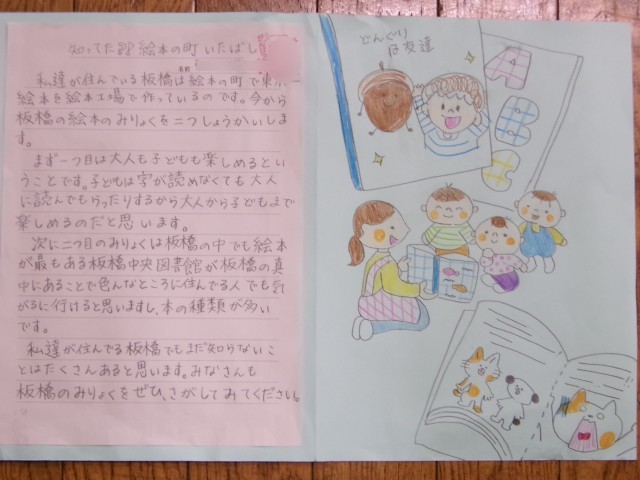 知ってた?? 絵本の町 いたばし
私達が住んでいる板橋は絵本の町で東京
絵本を絵本工場で作っているのです。今から
板橋の絵本のみりょくを二つしょうかいしま
す。
まず一つ目は大人も子どもも楽しめるとい
うことです。子どもは字が読めなくても大人
に読んでもらったりするから大人から子どもまで
楽しめるのだと思います。
次に二つ目のみりょくは板橋の中でも絵本
が最もある板橋中央図書館が板橋の真
中にあることで色んなところに住んでる人でも気
がるに行けると思いますし、本の種類が多い
です。
私達が住んでる板橋でもまだ知らないこ
とはたくさんあると思います。みなさんも
板橋のみりょくをぜひ、さがしてみてください。
どんぐり
は友達
A
B
C